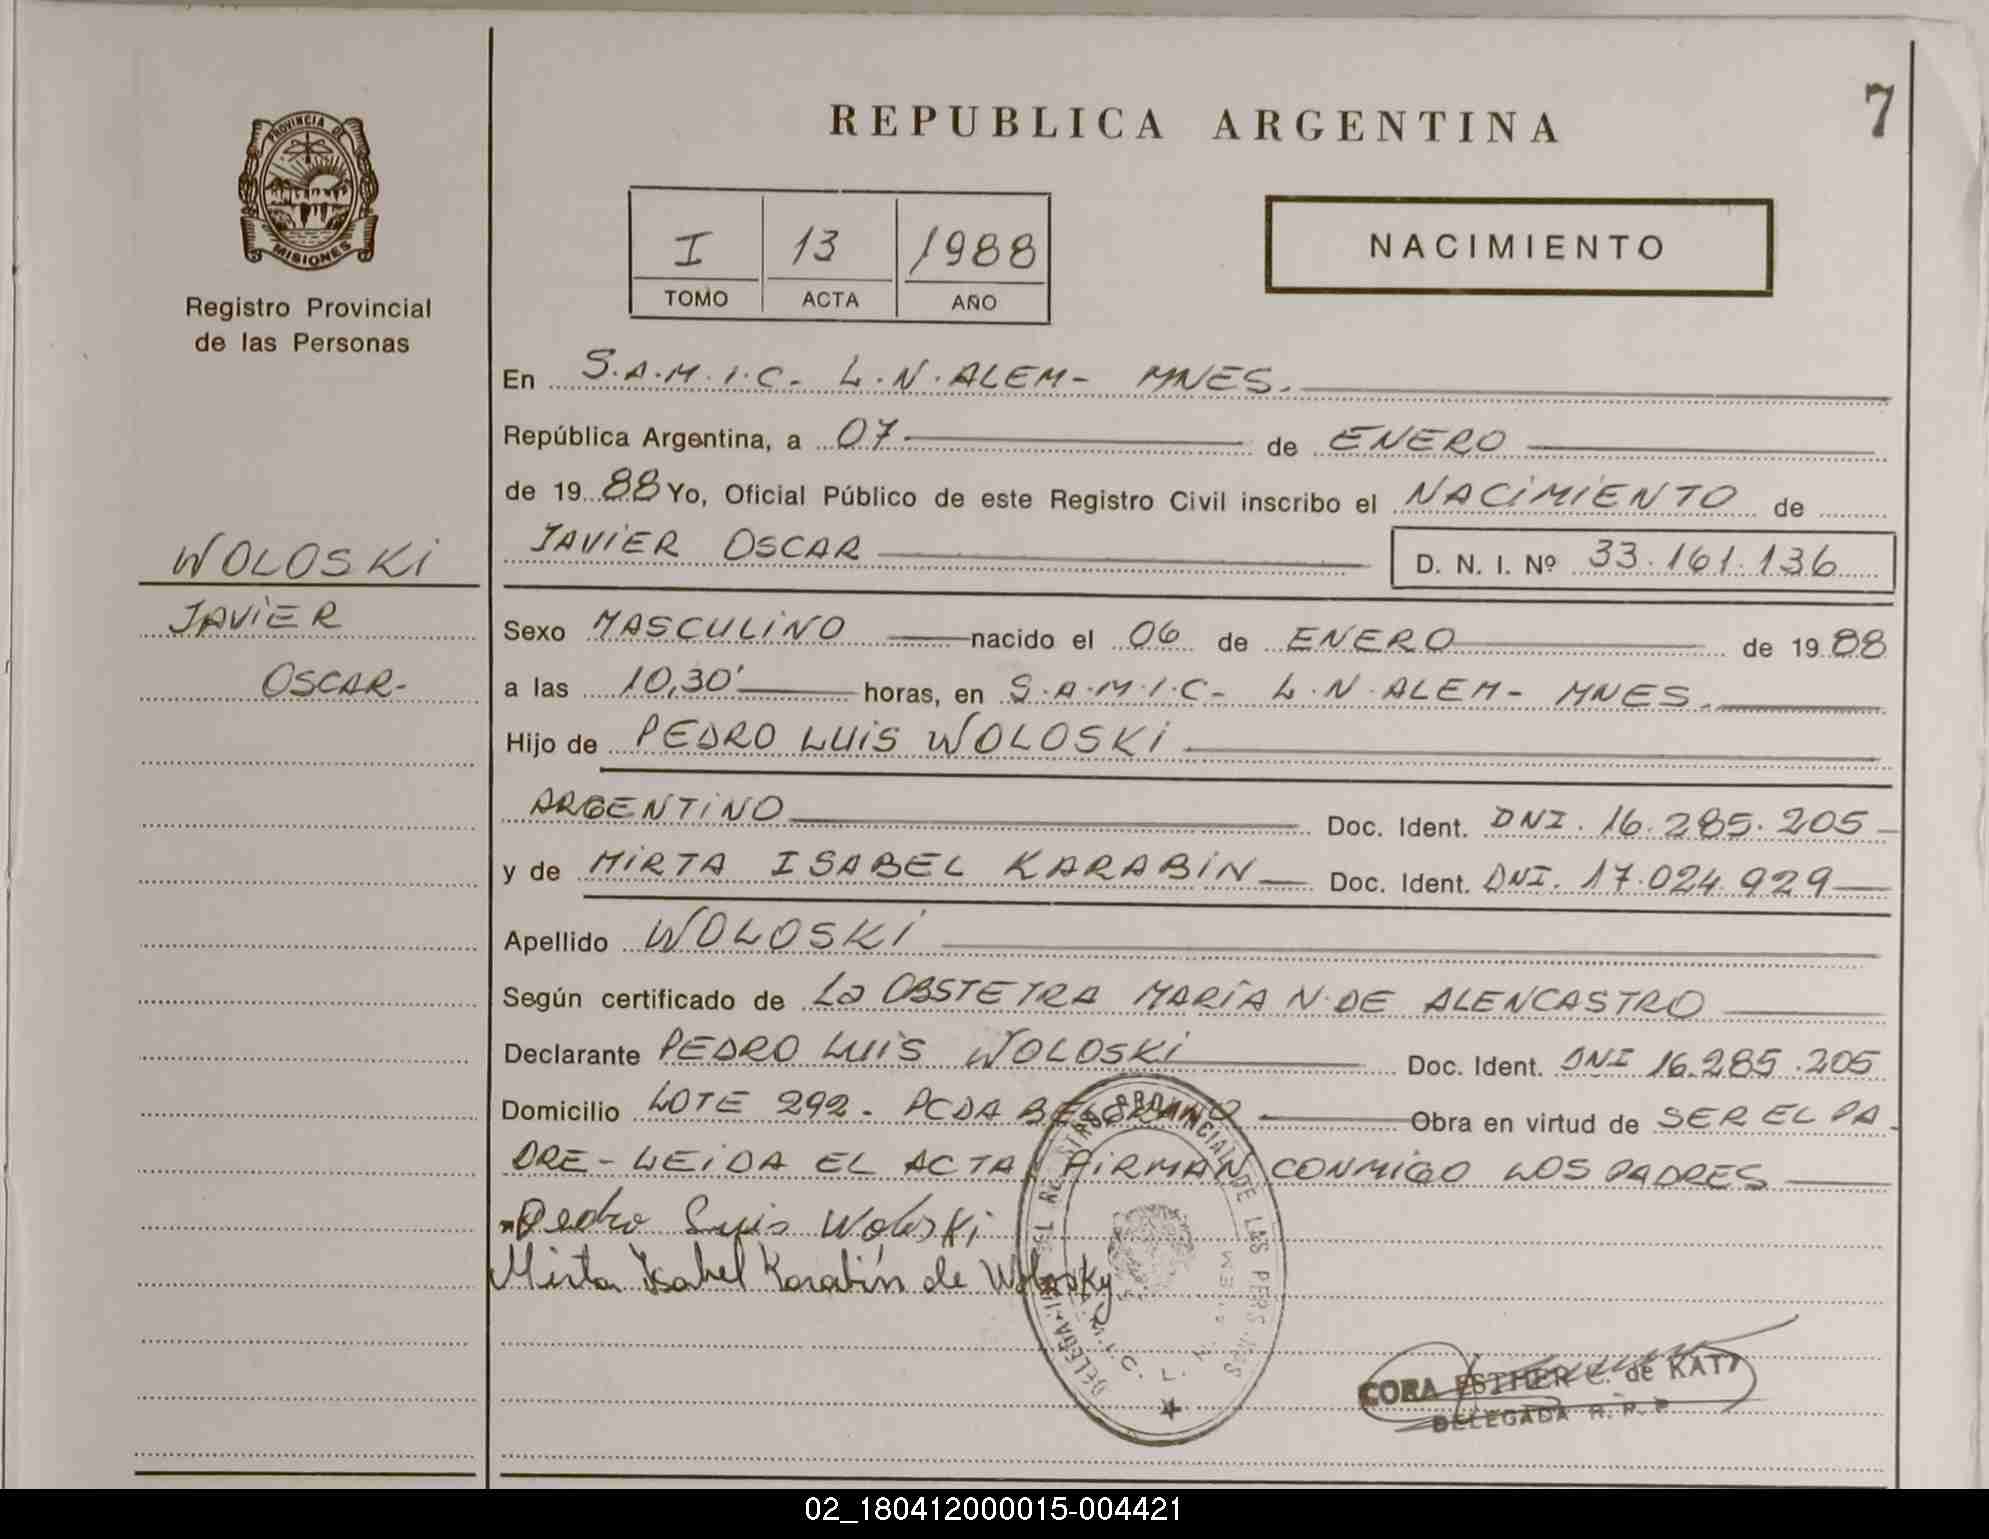 7
REPUBLICA ARGENTINA
PROVINCIA DE
MISIONES
Registro Provincial
de las Personas
I 13 1988
TOMO ACTA AÑO
NACIMIENTO
En S.A.M.I.C- L.N.ALEM- MNES.
República Argentina, a 07 de ENERO
de 19 88 Yo, Oficial Público de este Registro Civil inscribo el NACIMIENTO de
JAVIER OSCAR D. N. I. Nº 33.161.136
WOLOSKI
JAVIER
OSCAR-
Sexo MASCULINO nacido el 06 de ENERO de 19 88
a las 10,30' horas, en S.A.M.I.C- L.N.ALEM- MNES.
Hijo de PEDRO LUIS WOLOSKI
ARGENTINO Doc. Ident. DNI. 16.285.205
y de MIRTA ISABEL KARABIN Doc. Ident. DNI. 17.024.929
Apellido WOLOSKI
Según certificado de La OBSTETRA MARÍA N. DE ALENCASTRO
Declarante PEDRO LUIS WOLOSKI Doc. Ident. DNI 16.285.205
Domicilio LOTE 292- PCDA BELGRANO Obra en virtud de SER EL PA
DRE- LEIDA EL ACTA, FIRMAN CONMIGO LOS PADRES
Pedro Luis Woloski
Mirta Isabel Karabín de Wolosky
DELEGACION DEL REGISTRO PROVINCIAL DE LAS PERSONAS
CORA ESTHER C. de KATZ
DELEGADA R. P. P.
02_180412000015-004421